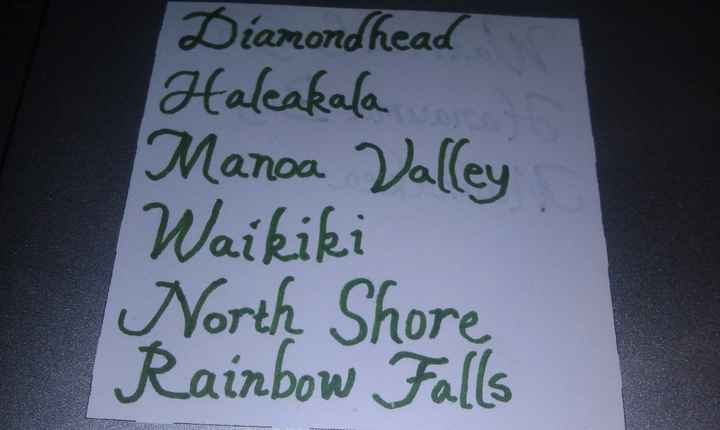 Diamondhead
Haleakala
Manoa Valley
Waikiki
North Shore
Rainbow Falls